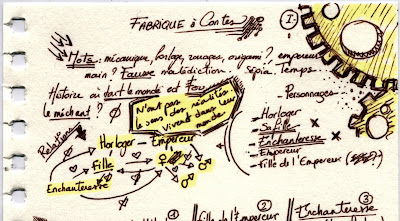 FABRIQUE à Contes
I
Mots: mécanique, horloge, rouages, origami? empereur
main? Fausse malédiction - Sépia, Temps
Histoire où tout le monde est Fou
le méchant? Ø
N'ont pas le sens des réalités
vivent dans leur monde
- Personnages
- Horloger
- Sa fille
- Enchanteresse
- Empereur
- Fille de l'Empereur
Relations
Horloger - Empereur
Fille
Enchanteresse
①
Fille de l'Empereur ②
Enchanteresse ③